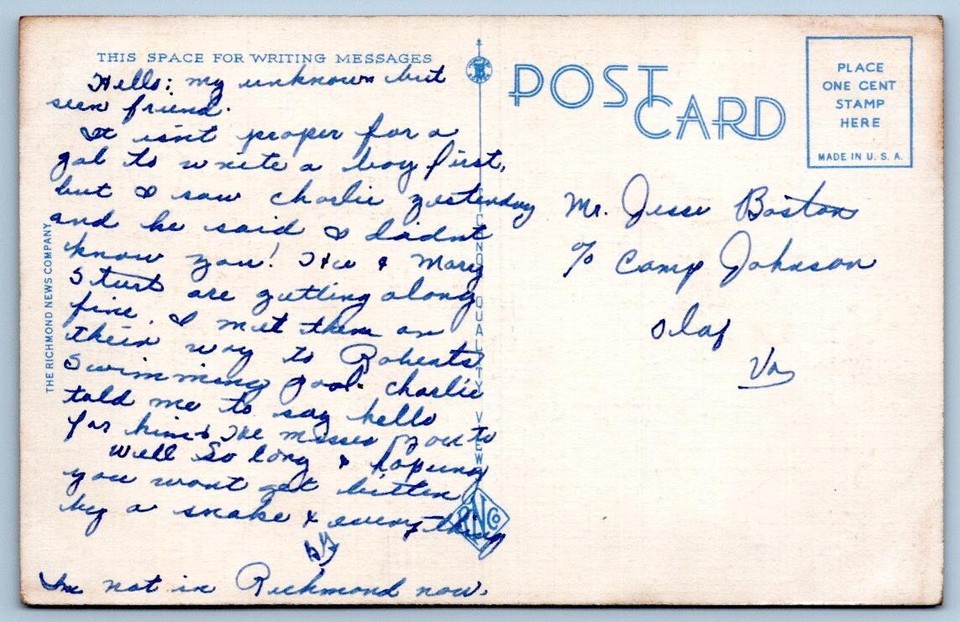 THIS SPACE FOR WRITING MESSAGES
Hello: my unknown but
seen friend.
It isn't proper for a
gal to write a boy first,
but I saw Charlie yesterday
and he said I didnt
know you! He & Mary
Sturt are getting along
fine. I met them on
their way to Roberts
Swimming pool. Charlie
told me to say hello
for him & He misses you to
Well So long & hoping
you wont get bitten
by a snake & everything
I'm not in Richmond now.
THE RICHMOND NEWS COMPANY
QUALITY VIEW
RNCo
POST
CARD
PLACE
ONE CENT
STAMP
HERE
MADE IN U. S. A.
Mr. Jesse Boston
c/o Camp Johnson
Olaf
Va